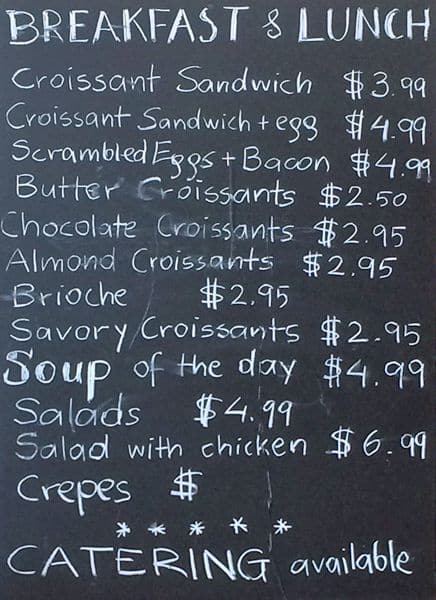 BREAKFAST & LUNCH
Croissant Sandwich $3.99
Croissant Sandwich + egg $4.99
Scrambled Eggs + Bacon $4.99
Butter Croissants $2.50
Chocolate Croissants $2.95
Almond Croissants $2.95
Brioche $2.95
Savory Croissants $2.95
Soup of the day $4.99
Salads $4.99
Salad with chicken $6.99
Crepes $
* * * * *
CATERING available